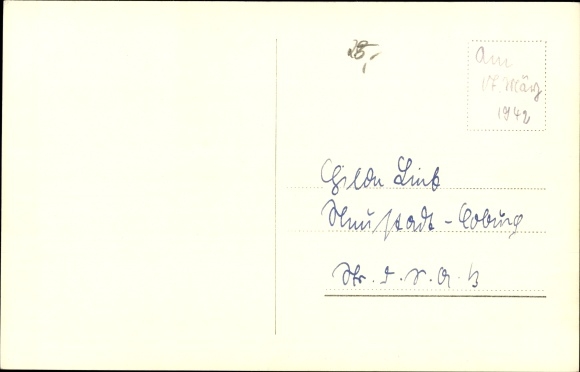 25,-
Am
17. März
1942
Hilde Link
Neustadt-Coburg
Str. d. S. A. 13